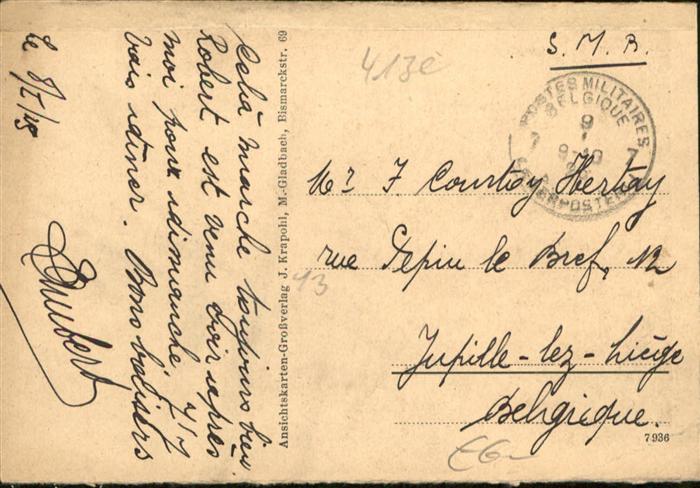 le 8/I/28
Celà marche toujours bien
Robert est venu voir après
moi pour dimanche. J'y
vais dîner. Bons baisers
Humbert
Ansichtskarten-Großverlag J. Krapohl, M.-Gladbach, Bismarckstr. 69
413e
S.M.B.
POSTES MILITAIRES
BELGIQUE
9
7 9-10 7
LEGERPOSTERIJ
Mr J Courtoy Herbay
rue Pepin le Bref, 12
13
Jupille-lez-Liège
Belgique.
7936